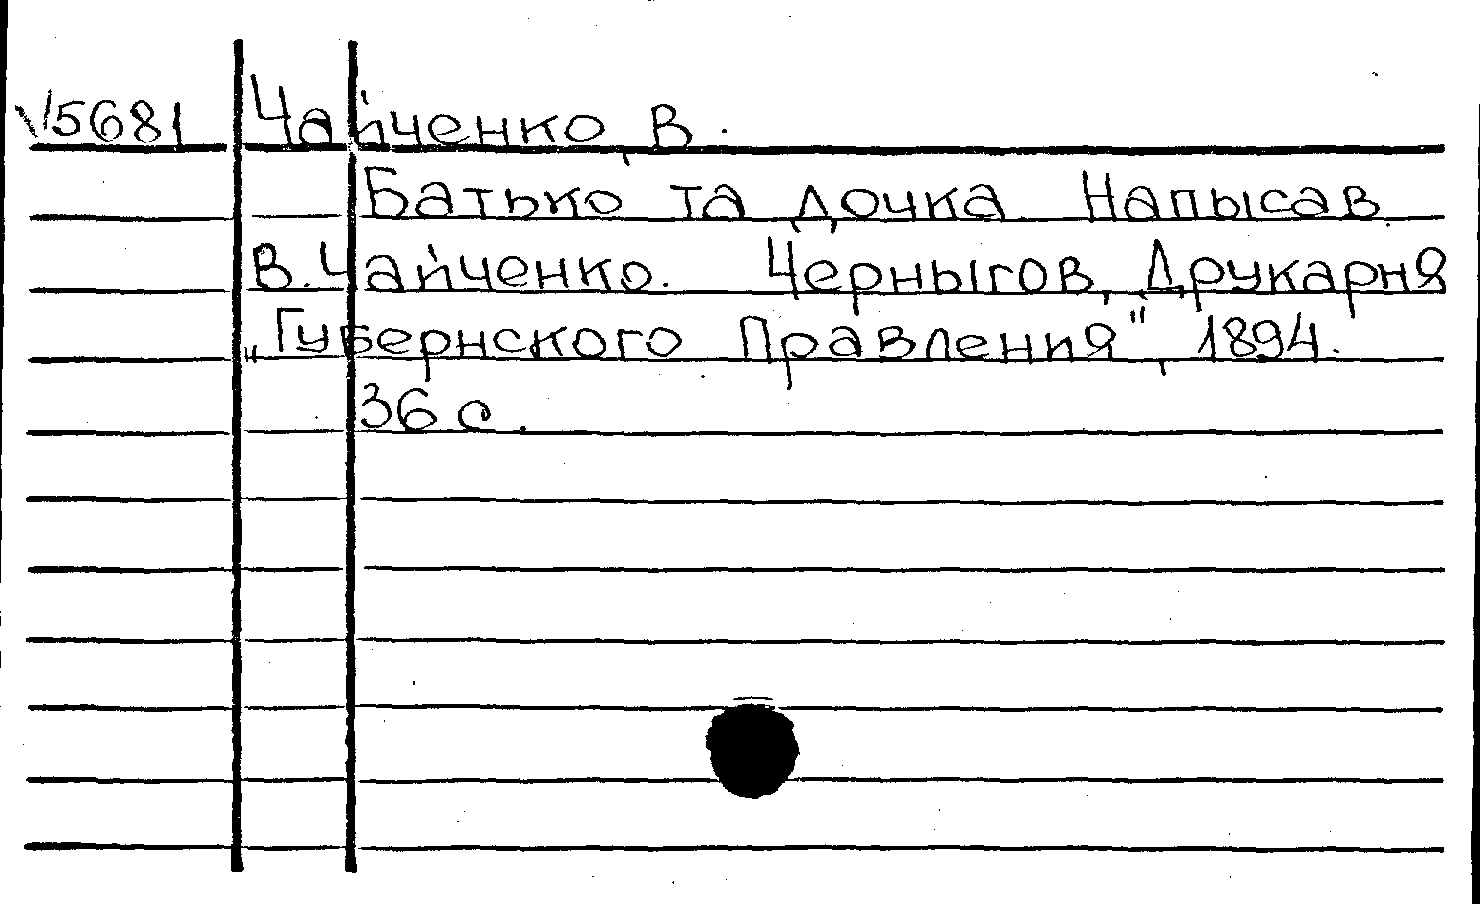 V5681 Чайченко, В.
Батько та дочка. Напысав
В. Чайченко. Черныгов, Друкарня
„Губернского Правления", 1894.
36 с.